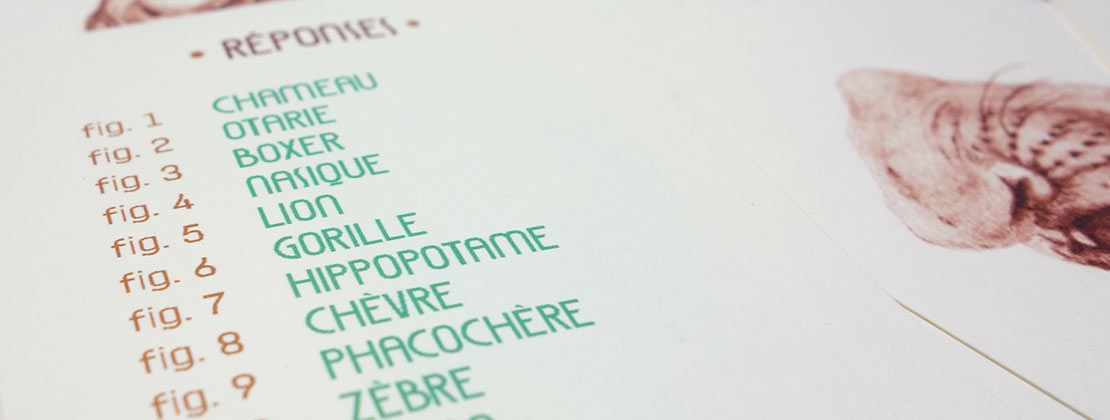 • RÉPONSES •
fig. 1 CHAMEAU
fig. 2 OTARIE
fig. 3 BOXER
fig. 4 NASIQUE
fig. 5 LION
fig. 6 GORILLE
fig. 7 HIPPOPOTAME
fig. 8 CHÈVRE
fig. 9 PHACOCHÈRE
ZÈBRE